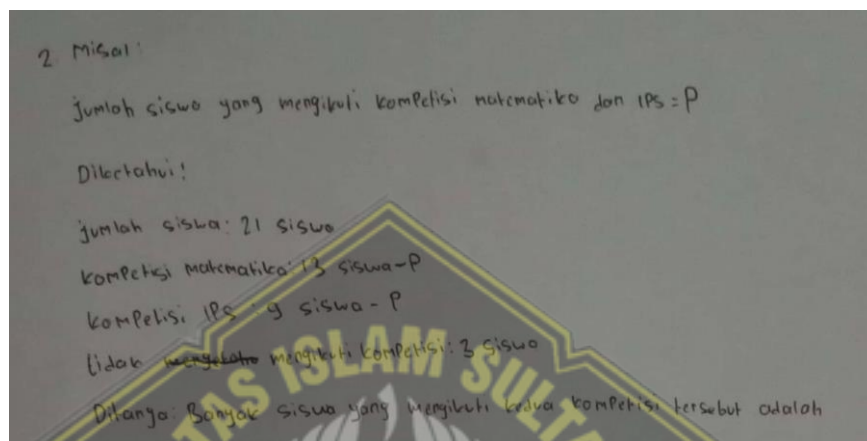 2. Misal:
jumlah siswa yang mengikuti kompetisi matematika dan IPS = P
Diketahui:
jumlah siswa: 21 siswa
kompetisi matematika: 13 siswa-P
kompetisi IPS : 9 siswa - P
tidak mengikuti kompetisi: 3 siswa
Ditanya: Banyak siswa yang mengikuti kedua kompetisi tersebut adalah
TAS ISLAM SULTA